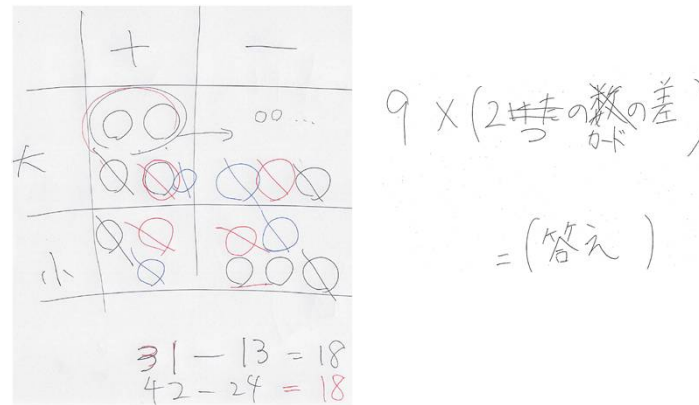 + −
大
小
31 − 13 = 18
42 − 24 = 18
9 × (2つのカードの差)
= (答え)